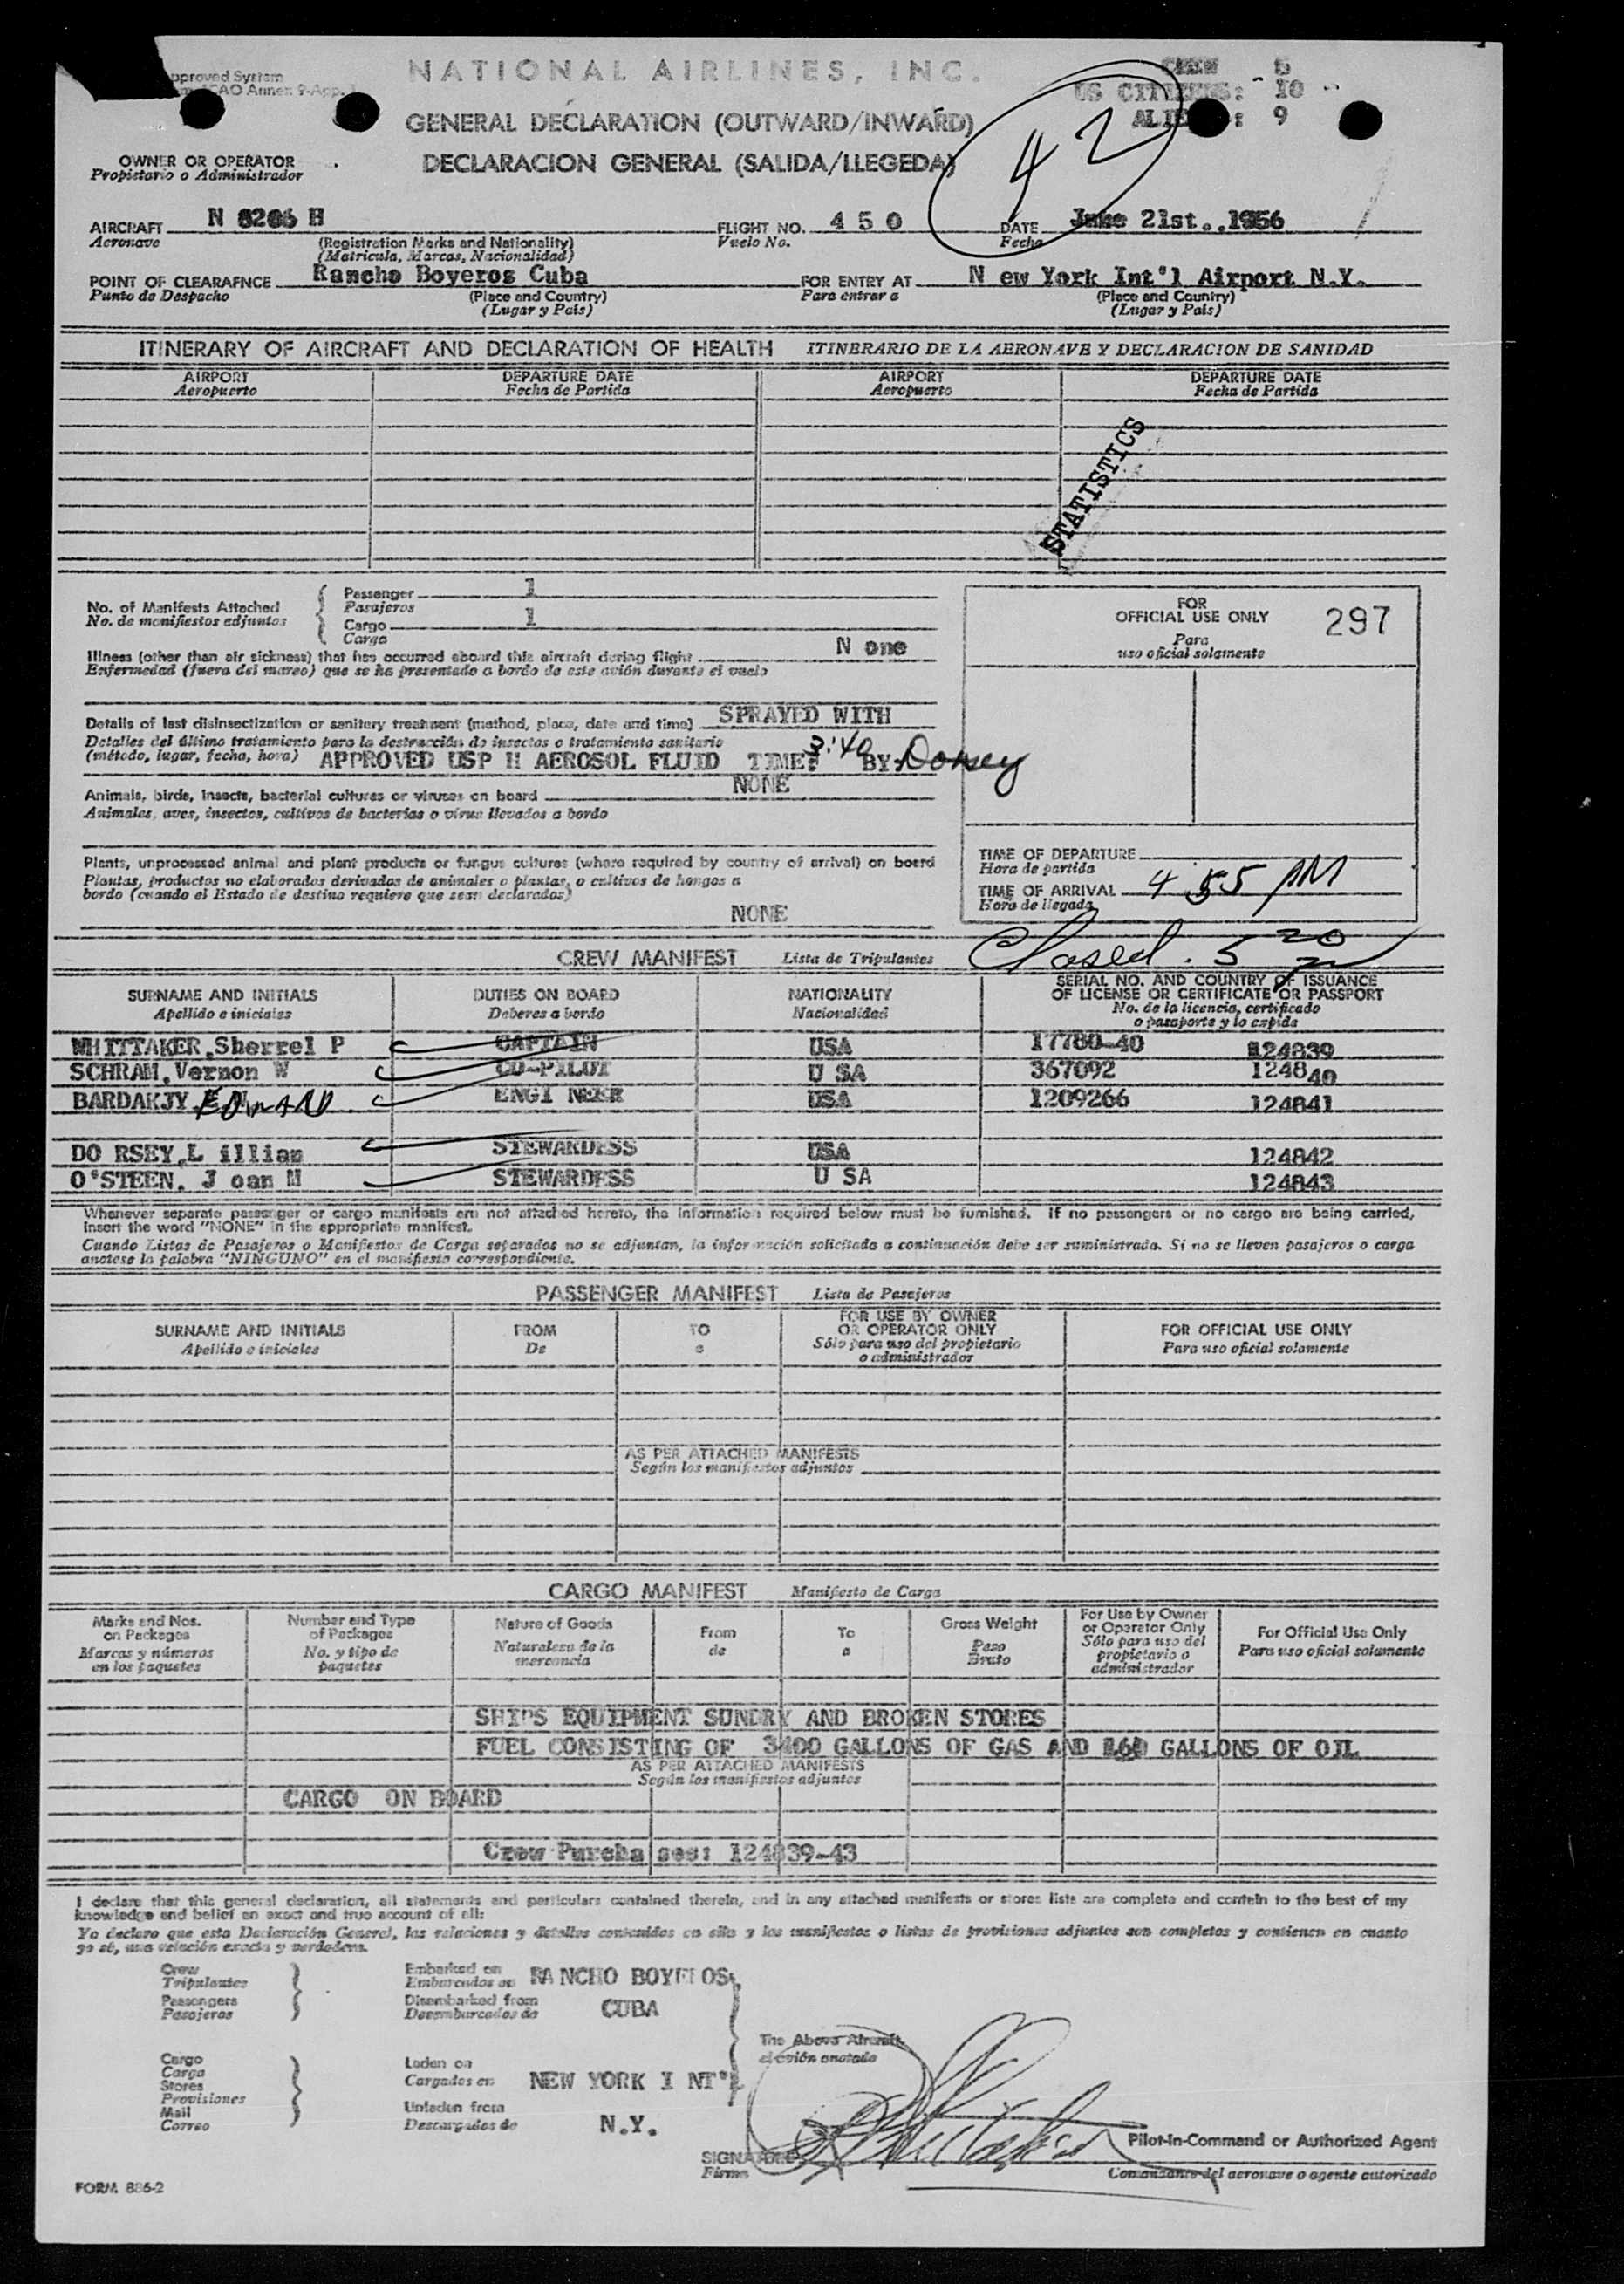 pproved System
NATIONAL AIRLINES, INC.
CREW 5
CAO Annex 9-App. 1
US CITIZENS: 10
GENERAL DECLARATION (OUTWARD/INWARD)
9
42
DECLARACION GENERAL (SALIDA/LLEGEDA)
OWNER OR OPERATOR
Propietario o Administrador
AIRCRAFT N 8206 H FLIGHT NO. 4 5 0 DATE June 21st.,1956
Aeronave (Registration Marks and Nationality) Vuelo No. Fecha
(Matricula, Marcas, Nacionalidad)
POINT OF CLEARAFNCE Rancho Boyeros Cuba FOR ENTRY AT N ew York Int'l Airport N.Y.
Punto de Despacho (Place and Country) Para entrar a (Place and Country)
(Lugar y Pais) (Lugar y Pais)
ITINERARY OF AIRCRAFT AND DECLARATION OF HEALTH ITINERARIO DE LA AERONAVE Y DECLARACION DE SANIDAD
AIRPORT DEPARTURE DATE AIRPORT DEPARTURE DATE
Aeropuerto Fecha de Partida Aeropuerto Fecha de Partida
STATISTICS
No. of Manifests Attached Passenger 1
No. de manifiestos adjuntos Pasajeros
Cargo 1
Carga
FOR
OFFICIAL USE ONLY 297
Para
uso oficial solamente
Illness (other than air sickness) that has occurred aboard this aircraft during flight N one
Enfermedad (fuera del mareo) que se ha presentado a bordo de este avión durante el vuelo
Details of last disinsectization or sanitary treatment (method, place, date and time) SPRAYED WITH
Detalles del último tratamiento para la destrucción de insectos o tratamiento sanitario
(método, lugar, fecha, hora) APPROVED USP II AEROSOL FLUID TIME: 3:40 BY Dorsey
Animals, birds, insects, bacterial cultures or viruses on board NONE
Animales, aves, insectos, cultivos de bacterias o virus llevados a bordo
Plants, unprocessed animal and plant products or fungus cultures (where required by country of arrival) on board
Plantas, productos no elaborados derivados de animales o plantas, o cultivos de hongos a
bordo (cuando el Estado de destino requiere que sean declarados)
NONE
TIME OF DEPARTURE
Hora de partida
TIME OF ARRIVAL 4 55 PM
Hora de llegada
Closed. 5 20
CREW MANIFEST Lista de Tripulantes
SURNAME AND INITIALS DUTIES ON BOARD NATIONALITY SERIAL NO. AND COUNTRY OF ISSUANCE
OF LICENSE OR CERTIFICATE OR PASSPORT
Apellido e iniciales Deberes a bordo Nacionalidad No. de la licencia, certificado
o pasaporte y lo expide
WHITTAKER,Sherrel P CAPTAIN USA 17780-40 124839
SCHRAM,Vernon W CO-PILOT U SA 367092 124840
BARDAKJY EDWARD ENGI NEER USA 1209266 124841
DO RSEY,L illian STEWARDESS USA 124842
O'STEEN, J oan M STEWARDESS U SA 124843
Whenever separate passenger or cargo manifests are not attached hereto, the information required below must be furnished. If no passengers or no cargo are being carried,
insert the word "NONE" in the appropriate manifest.
Cuando Listas de Pasajeros o Manifiestos de Carga separados no se adjuntan, la información solicitada a continuación debe ser suministrada. Si no se lleven pasajeros o carga
anotese la palabra "NINGUNO" en el manifiesto correspondiente.
PASSENGER MANIFEST Lista de Pasajeros
SURNAME AND INITIALS FROM TO FOR USE BY OWNER
OR OPERATOR ONLY FOR OFFICIAL USE ONLY
Apellido e iniciales De a Sólo para uso del propietario
o administrador Para uso oficial solamente
AS PER ATTACHED MANIFESTS
Según los manifiestos adjuntos
CARGO MANIFEST Manifiesto de Carga
Marks and Nos.
on Packages
Marcas y números
en los paquetes
Number and Type
of Packages
No. y tipo de
paquetes
Nature of Goods
Naturaleza de la
mercancia
From
de
To
a
Gross Weight
Peso
Bruto
For Use by Owner
or Operator Only
Sólo para uso del
propietario o
administrador
For Official Use Only
Para uso oficial solamente
SHIPS EQUIPMENT SUNDRY AND BROKEN STORES
FUEL CONSISTING OF 3400 GALLONS OF GAS AND GALLONS OF OIL
AS PER ATTACHED MANIFESTS
Según los manifiestos adjuntos
CARGO ON BOARD
Crew Purcha ses: 124839-43
I declare that this general declaration, all statements and particulars contained therein, and in any attached manifests or stores lists are complete and contain to the best of my
knowledge and belief an exact and true account of all:
Yo declaro que esta Declaración General, las relaciones y detalles contenidos en ella y los manifiestos o listas de provisiones adjuntos son completos y contienen en cuanto
yo sé, una relación exacta y verdadera.
Crew
Tripulantes
Passengers
Pasajeros
Embarked on
Embarcados en RANCHO BOYEROS,
Disembarked from
Desembarcados de CUBA
The Above Aircraft
el avión anotado
Cargo
Carga
Stores
Provisiones
Mail
Correo
Laden on
Cargados en NEW YORK I NT'L
Unladen from
Descargados de N.Y.
SIGNATURE
Firma
Pilot-in-Command or Authorized Agent
Comandante del aeronave o agente autorizado
FORM 886-2